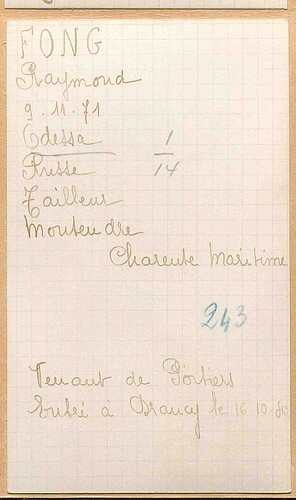 FONG
Raymond
9.11.71
Odessa 1/14
Russe
Tailleur
Montendre
Charente Maritime
243
Venant de Poitiers
Entré à Drancy le 16.10.42